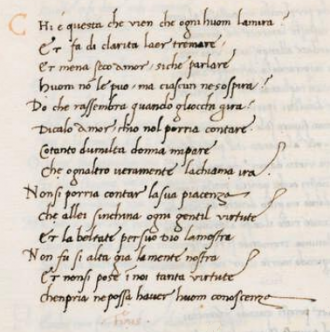 C Hi é questa che vien che ogni huom lamira?
Et fa di clarita laer tremare,
Et mena seco Amor, siche parlare
Huom nō le puo, ma ciascun ne sospira?
Do che rassembra quando gliocchi gira?
Dicalo Amor, chio nol porria contare.
Cotanto dumilta donna mi pare
Che ognaltro veramente lachiama ira?
Non si porria contar la sua piacenza
Che allei sinchina ogni gentil virtute
Et la beltate per suo Dio la mostra
Non fu si alta gia la mente nostra
Et non si pose i noi tanta virtute
chenpria ne possa haver huom conoscenza